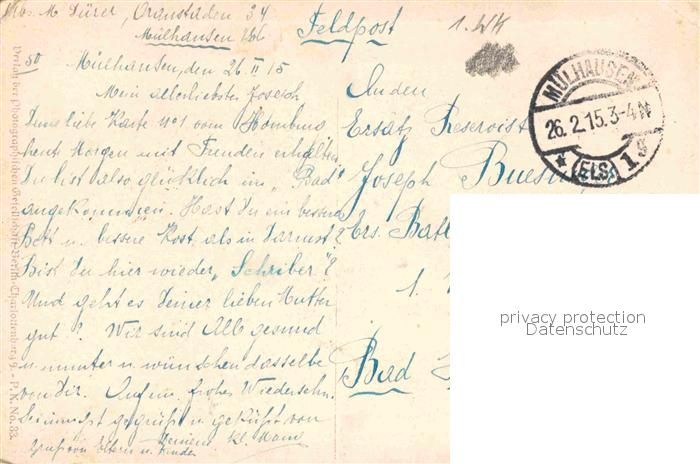 Abs. M Dürer, Oranstaden 34
Mülhausen Els
Feldpost
1. WK
50
Mülhausen, den 26 II 15
Mein allerliebster Joseph
Deine liebe Karte No 1 vom Homburg
heut Morgen mit Freuden erhalten
Du bist also glücklich im "Bad"
angekommen. Hast Du ein besseres
Bett u. bessere Kost als in Darmst?
Bist Du hier wieder "Schriber"?
Und geht es Deiner lieben Mutter
gut? Wir sind Alle gesund
u. munter u. wünschen dasselbe
von Dir. Auf ein frohes Wiedersehn.
Sei innigst gegrüßt u. geküßt von
Deinem kl.
Gruß von Eltern u. Kinder
An den
Ersatz Reservist
Joseph
Ers. Batl
1.
Bad
MÜLHAUSEN
26.2.15.3-4N
* (ELS) 1 g
Verlag der Photographischen Gesellschaft-Berlin-Charlottenburg 9. P. K. No. 83.
privacy protection
Datenschutz